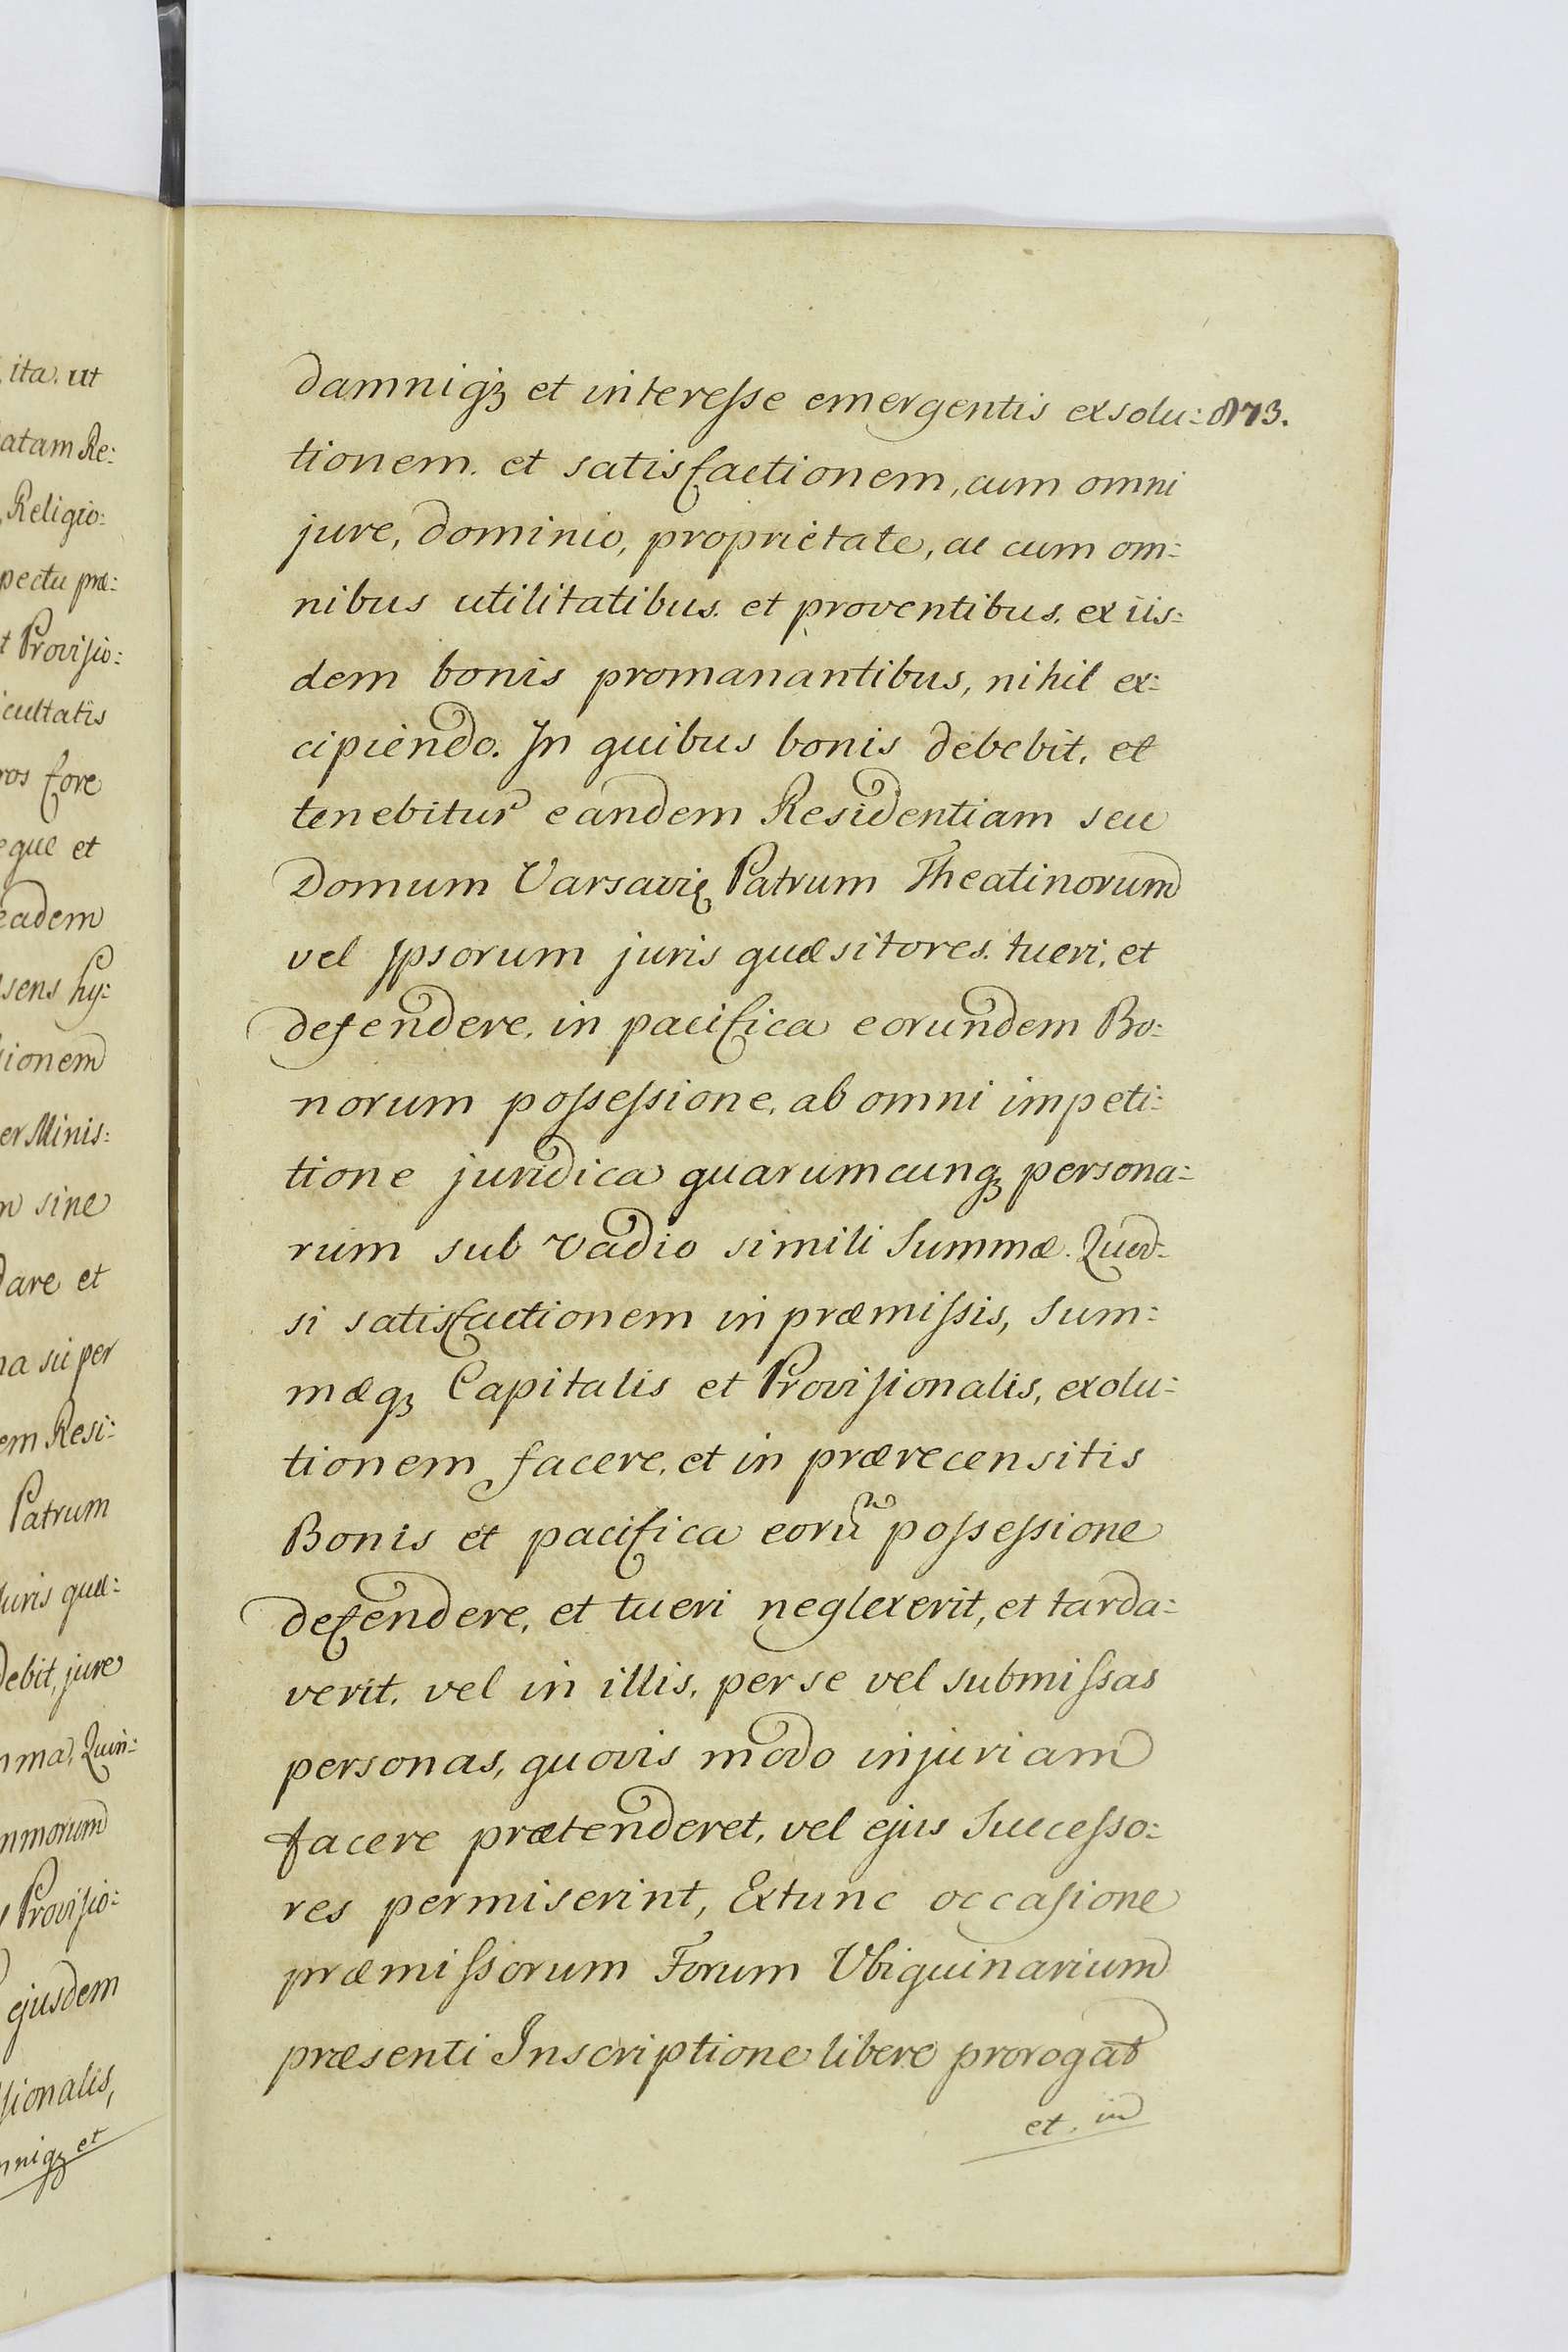 ita. ut
atam Re:
Religio:
pectu præ:
t Provisio:
icultatis
ros fore
eque et
eadem
sens hy:
sionem
er Minis:
m sine
dare et
na super
em Resi:
Patrum
Juris quæ:
debit, jure
mma, Quin:
mmorum
Provisio:
ejusdem
sionalis,
mniqȝ et
damniqȝ et interesse emergentis exsolu: 873.
tionem. et satisfactionem, cum omni
jure, dominio, proprietate, ac cum om:
nibus utilitatibus. et proventibus. ex iis:
dem bonis promanantibus, nihil ex:
cipiendo. In quibus bonis debebit, et
tenebitur eandem Residentiam seu
Domum Varsavię Patrum Theatinorum
vel Ipsorum juris quæsitores. tueri, et
defendere, in pacifica eorundem Bo:
norum possessione, ab omni impeti:
tione juridica quarumcunqȝ persona:
rum sub vadio simili Summæ. Quod:
si satisfactionem in præmissis, Sum:
mæqȝ Capitalis et Provisionalis, exolu:
tionem facere, et in prærecensitis
Bonis et pacifica eorũ possessione
defendere, et tueri neglexerit, et tarda:
verit. vel in illis, per se vel submissas
personas, quovis modo injuriam
facere prætenderet, vel ejus Successo:
res permiserint, Extunc occasione
præmissorum Forum Ubiquinarium
præsenti Inscriptione libere prorogat
et. in